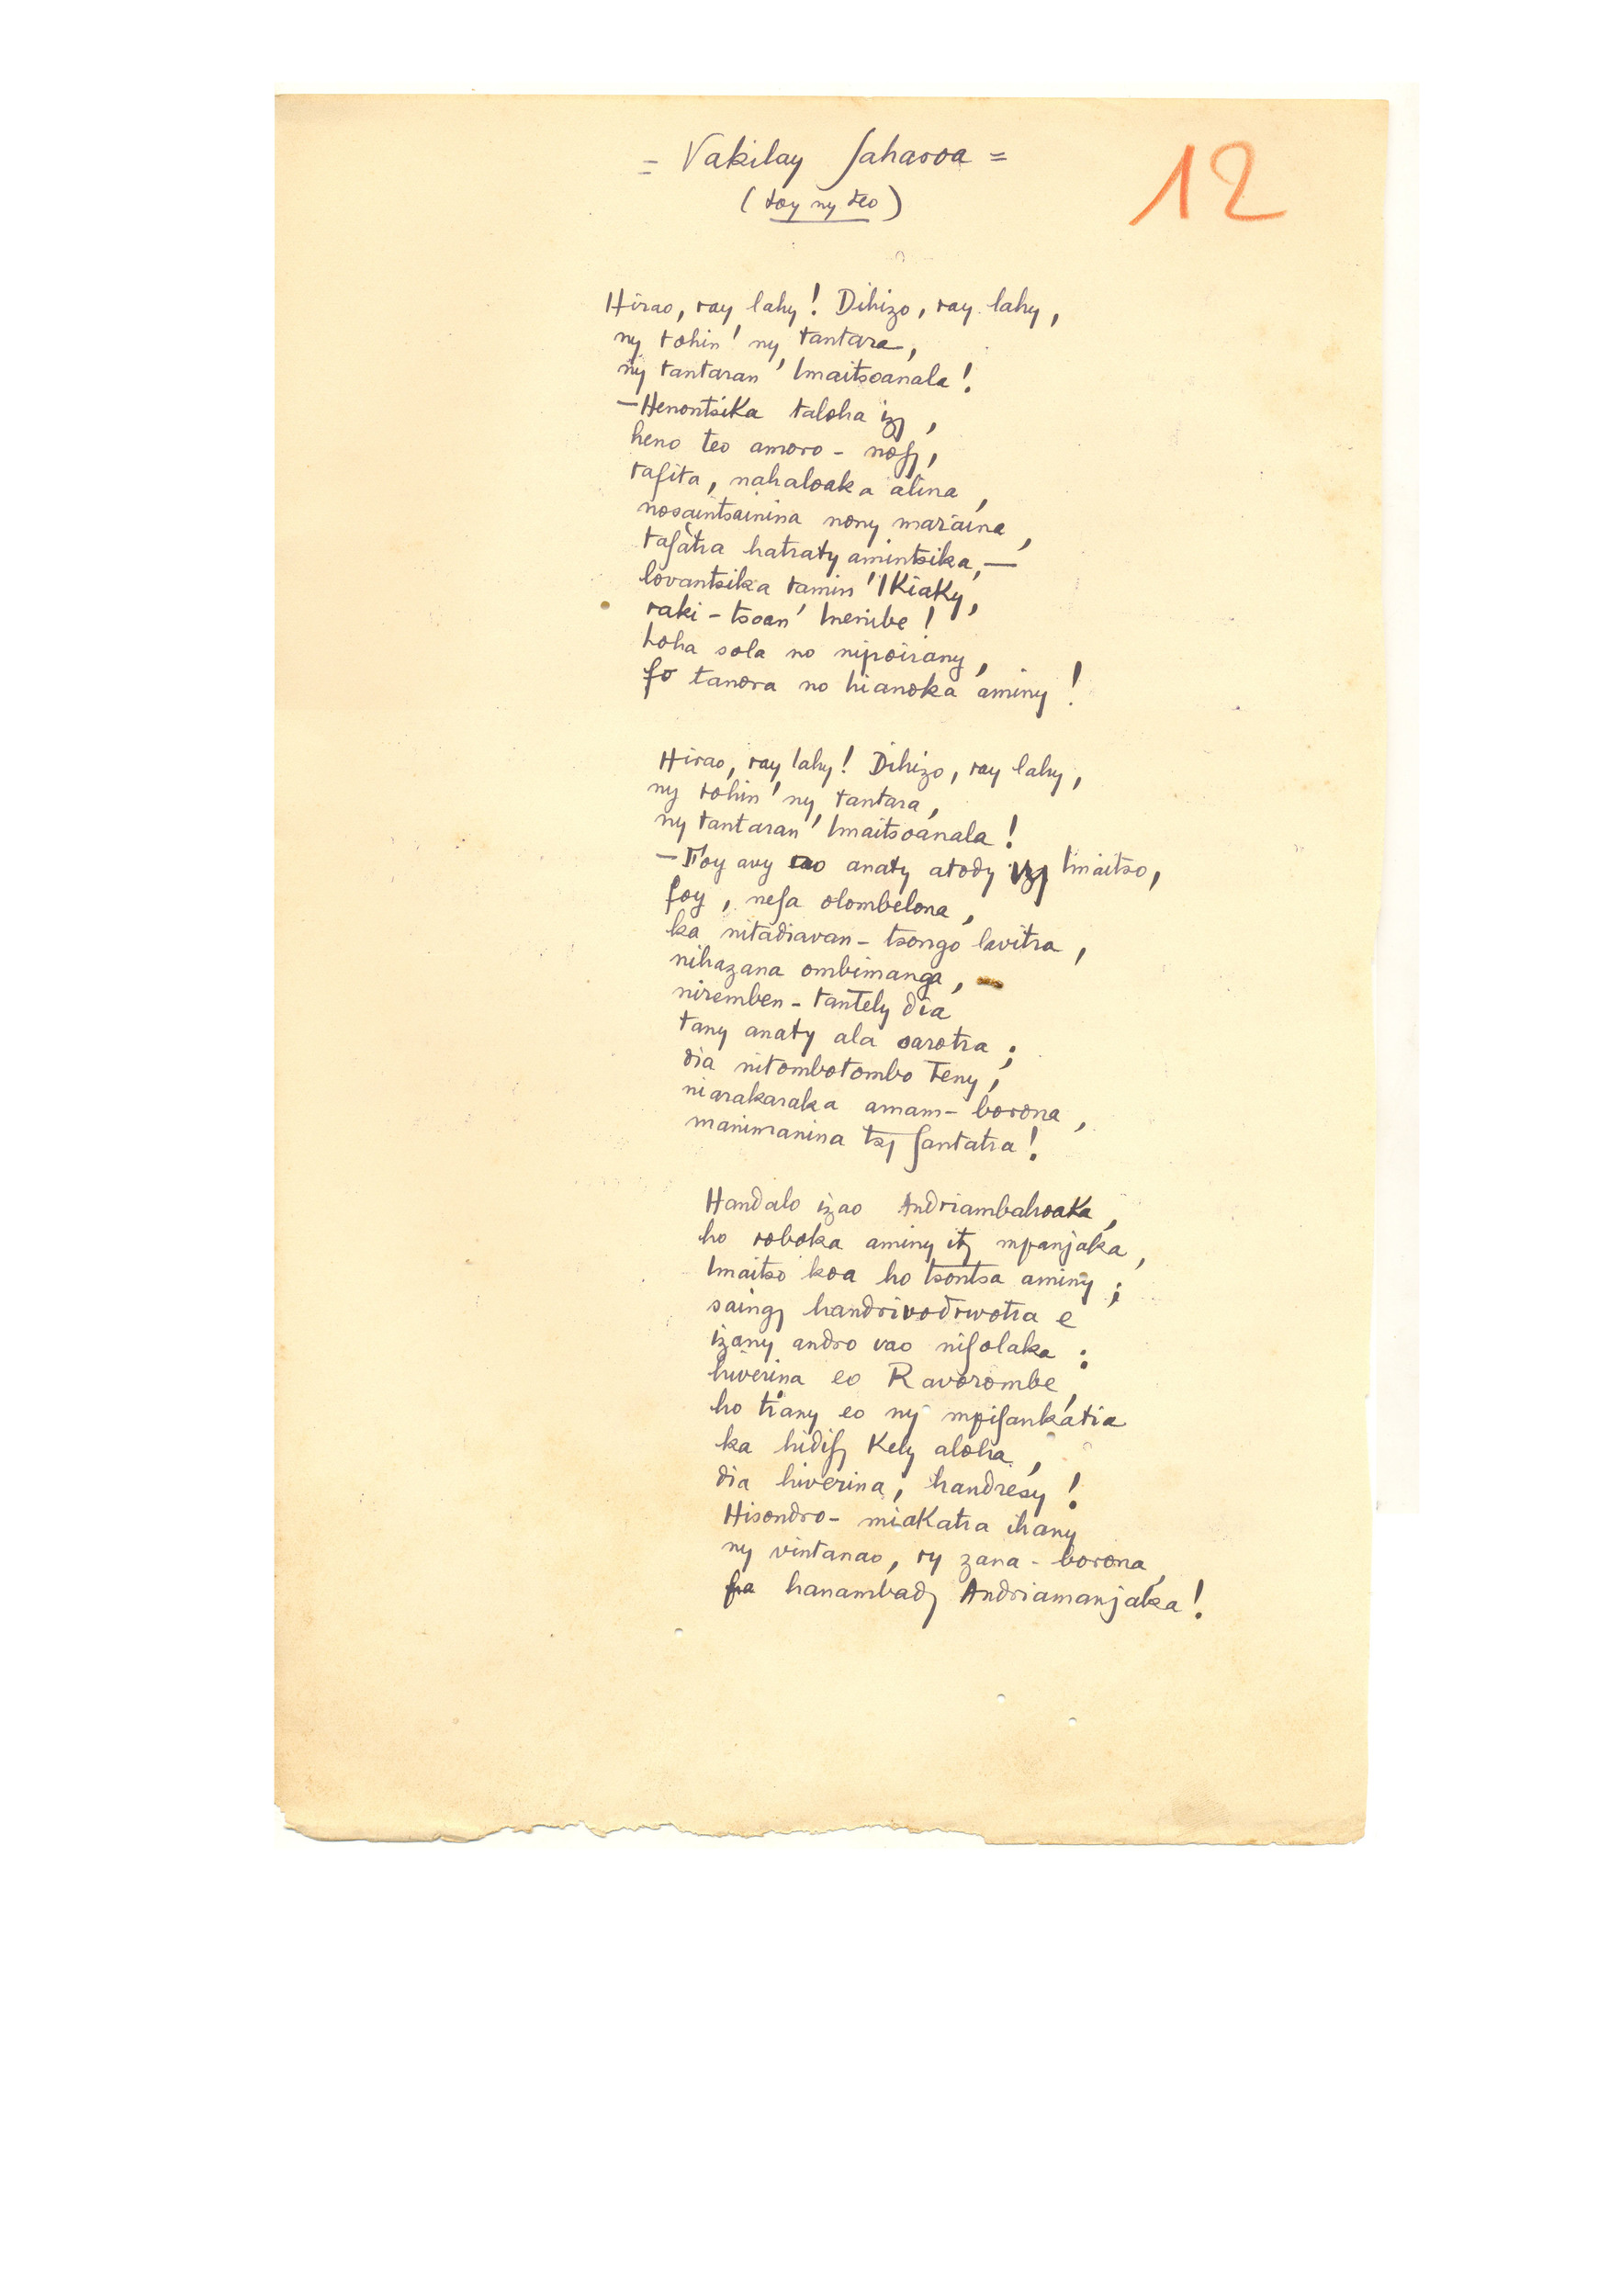 = Vakilay faharoa =
(toy ny teo)
12
Hirao, ray lahy! Dihizo, ray lahy,
ny tohin' ny tantara,
ny tantaran' Imaitsoanala!
— Henontsika taloha izy,
heno teo amoro-nosy,
tafita, nahaloaka alina,
nosaintsainina nony maraina,
tafàtra hatraty amintsika, —
lovantsika tamin' Ikiaky,
raki-tsoan' Inenibe!
Loha sola no nipoirany,
fo tanora no hianoka aminy!
Hirao, ray lahy! Dihizo, ray lahy,
ny tohin' ny tantara,
ny tantaran' Imaitsoanala!
— Foy avy tao anaty atody izy Imaitso,
foy, nefa olombelona,
ka nitadiavan-tsongo lavitra,
nihazana ombimanga,
niremben-tantely dia
tany anaty ala sarotra;
dia nitombotombo teny,
niarakaraka amam-borona,
manimanina tsy fantatra!
Handalo izao Andriambahoaka,
ho roboka aminy ity mpanjaka,
Imaitso koa ho tsontsa aminy;
saingy handrivodrivotra e
izany andro vao nifolaka:
hiverina eo Ravorombe,
ho tiany eo ny mpifankatia
ka hidify kely aloha,
dia hiverina, handresy!
Hisondro-miakatra ihany
ny vintanao, ry zana-borona,
fa hanambady Andriamanjaka!